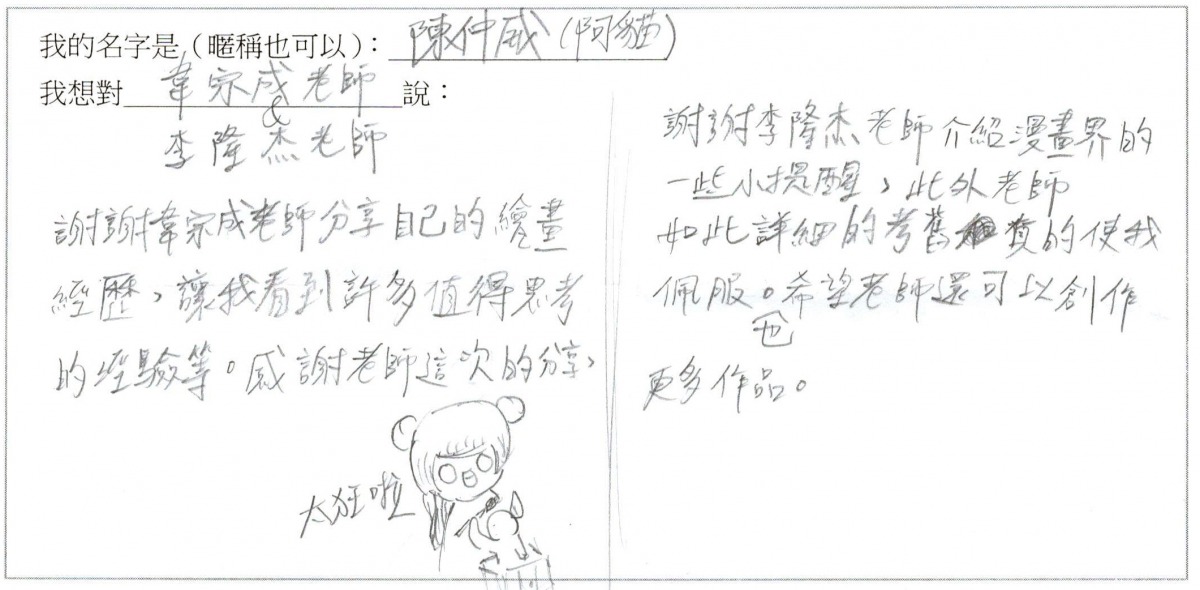 我的名字是（暱稱也可以）：陳仲威(阿貓)
我想對韋宗成老師說：
&
李隆杰老師
謝謝韋宗成老師分享自己的繪畫
經歷，讓我看到許多值得思考
的經驗等。感謝老師這次的分享，
太狂啦
謝謝李隆杰老師介紹漫畫界的
一些小提醒，此外老師
如此詳細的考舊真的使我
佩服。希望老師還可以創作
也
更多作品。